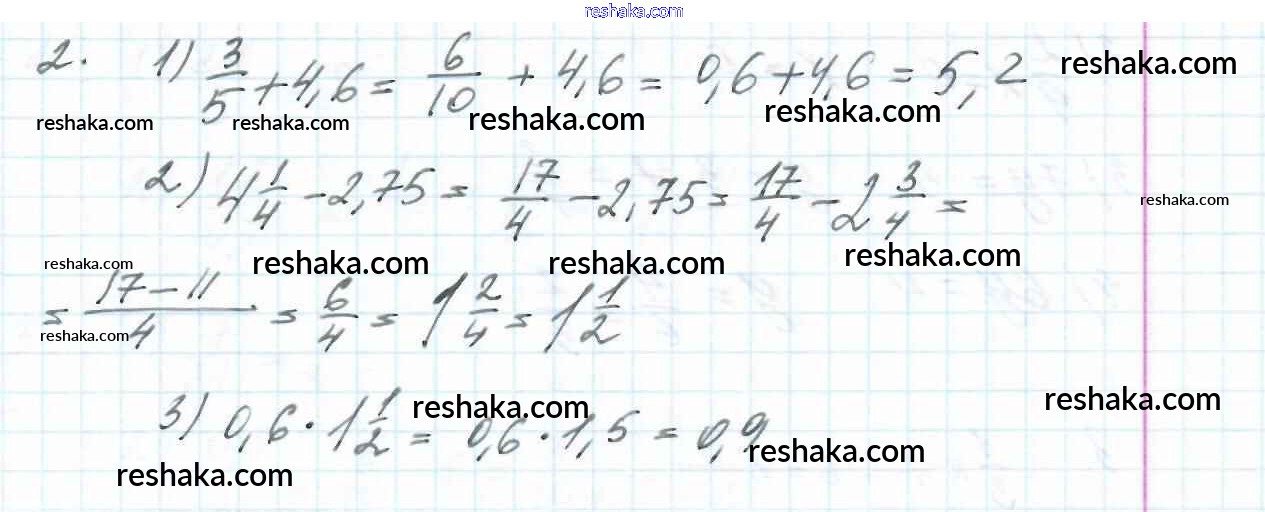 reshaka.com
2. 1) 3/5 + 4,6 = 6/10 + 4,6 = 0,6 + 4,6 = 5,2 reshaka.com
reshaka.com reshaka.com reshaka.com reshaka.com
2) 4 1/4 - 2,75 = 17/4 - 2,75 = 17/4 - 2 3/4 = reshaka.com
reshaka.com reshaka.com reshaka.com reshaka.com
= (17 - 11)/4 = 6/4 = 1 2/4 = 1 1/2
reshaka.com
3) 0,6 · 1 1/2 = 0,6 · 1,5 = 0,9 reshaka.com reshaka.com
reshaka.com reshaka.com